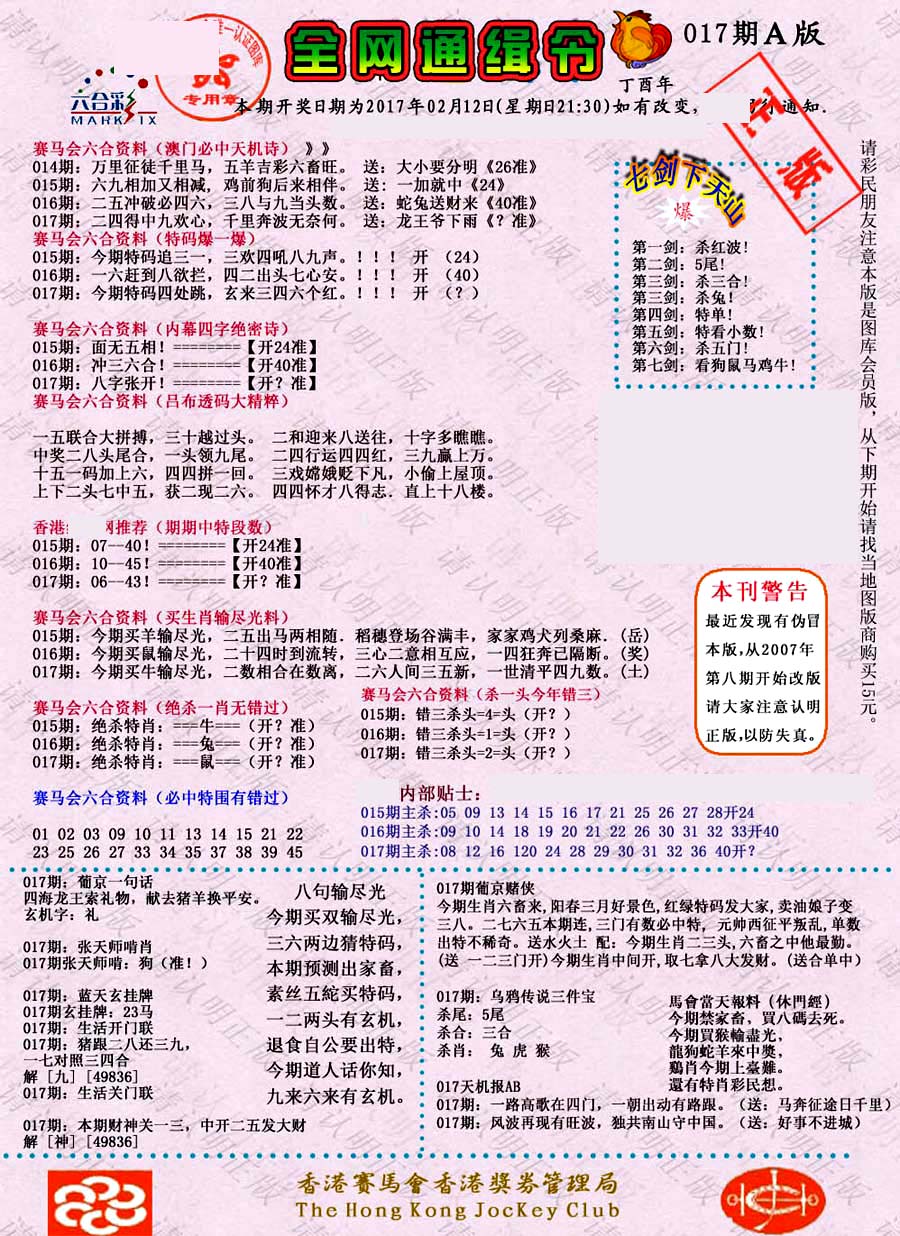 全网通缉令
017期A版
丁酉年
专用章
六合彩
MARK SIX
本期开奖日期为2017年02月12日(星期日21:30)如有改变,
通知.
正版
赛马会六合资料（澳门必中天机诗）》》
014期：万里征徒千里马，五羊吉彩六畜旺。 送：大小要分明《26准》
015期：六九相加又相减, 鸡前狗后来相伴。 送：一加就中《24》
016期：二五冲破必四六，三八与九当头数。 送：蛇兔送财来《40准》
017期：二四得中九欢心，千里奔波无奈何。 送：龙王爷下雨《？准》
赛马会六合资料（特码爆一爆）
015期：今期特码追三一，三欢四吼八九声。！！！ 开 （24）
016期：一六赶到八欲拦，四二出头七心安。！！！ 开 （40）
017期：今期特码四处跳，玄来三四六个红。！！！ 开 （？）
赛马会六合资料（内幕四字绝密诗）
015期：面无五相！========【开24准】
016期：冲三六合！========【开40准】
017期：八字张开！========【开？准】
赛马会六合资料（吕布透码大精粹）
一五联合大拼搏，三十越过头。 二和迎来八送往，十字多瞧瞧。
中奖二八头尾合，一头领九尾。 二四行运四四红，三九赢上万。
十五一码加上六，四四拼一回。 三戏嫦娥贬下凡，小偷上屋顶。
上下二头七中五，获二现二六。 四四怀才八得志．直上十八楼。
七剑下天山
爆
第一剑：杀红波！
第二剑：5尾！
第三剑：杀三合！
第三剑：杀兔！
第四剑：特单！
第五剑：特看小数！
第六剑：杀五门！
第七剑：看狗鼠马鸡牛！
请彩民朋友注意本版是图库会员版，从下期开始请找当地图版商购买15元。
香港 网推荐（期期中特段数）
015期：07--40！========【开24准】
016期：10--45！========【开40准】
017期：06--43！========【开？准】
本刊警告
最近发现有伪冒
本版,从2007年
第八期开始改版
请大家注意认明
正版,以防失真。
赛马会六合资料（买生肖输尽光料）
015期：今期买羊输尽光，二五出马两相随．稻穗登场谷满丰，家家鸡犬列桑麻．(岳)
016期：今期买鼠输尽光，二十四时到流转，三心二意相互应，一四狂奔已隔断。(奖)
017期：今期买牛输尽光，二数相合在数离，二六人间三五新，一世清平四九数。(土)
赛马会六合资料（绝杀一肖无错过）
015期：绝杀特肖：===牛===（开？准）
016期：绝杀特肖：===兔===（开？准）
017期：绝杀特肖：===鼠===（开？准）
赛马会六合资料（杀一头今年错三）
015期：错三杀头=4=头（开？）
016期：错三杀头=1=头（开？）
017期：错三杀头=2=头（开？）
赛马会六合资料（必中特围有错过）
01 02 03 09 10 11 13 14 15 21 22
23 25 26 27 33 34 35 37 38 39 45
内部贴士：
015期主杀:05 09 13 14 15 16 17 21 25 26 27 28开24
016期主杀:09 10 14 18 19 20 21 22 26 30 31 32 33开40
017期主杀:08 12 16 120 24 28 29 30 31 32 36 40开？
017期：葡京一句话
四海龙王索礼物，献去猪羊换平安。
玄机字：礼
017期：张天师啃肖
017期张天师啃：狗（准！）
017期：蓝天玄挂牌
017期玄挂牌：23马
017期：生活开门联
017期：猪跟二八还三九，
一七对照三四合
解［九］[49836]
017期：生活关门联
017期：本期财神关一三，中开二五发大财
解［神］[49836]
八句输尽光
今期买双输尽光，
三六两边猜特码，
本期预测出家畜，
素丝五紽买特码，
一二两头有玄机，
退食自公要出特，
今期道人话你知，
九来六来有玄机。
017期葡京赌侠
今期生肖六畜来,阳春三月好景色,红绿特码发大家,卖油娘子变
三八。二七六五本期连,三门有数必中特, 元帅西征平叛乱,单数
出特不稀奇。送水火土 配：今期生肖二三头,六畜之中他最勤。
(送 一二三门开)今期生肖中间开,取七拿八大发财。(送合单中)
017期：乌鸦传说三件宝
杀尾：5尾
杀合：三合
杀肖： 兔 虎 猴
馬會當天報料（休門經）
今期禁家畜，買八碼去死。
今期買猴輸盡光，
龍狗蛇羊來中獎，
鷄肖今期上臺難。
還有特肖彩民想。
017天机报AB
017期：一路高歌在四门，一朝出动有路跟。（送：马奔征途日千里）
017期：风波再现有旺波，独共南山守中国。（送：好事不进城）
香港賽馬會香港獎券管理局
The Hong Kong JocKey Club